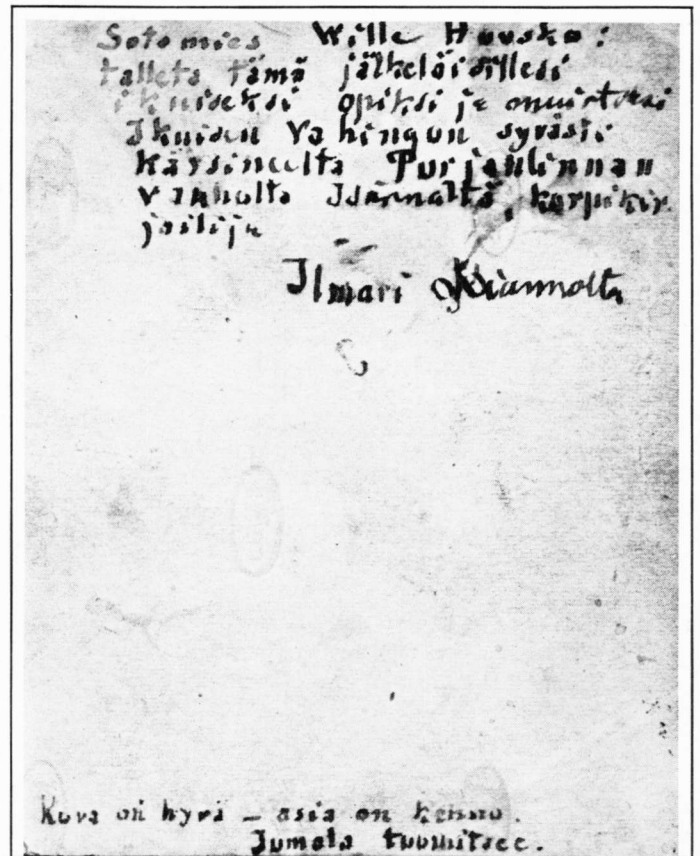 Sotamies Wille Hauska:
talleta tämä jälkeläisillesi
ikuiseksi opiksi ja muistoksi
Ikuisen Vahingon syvästi
Kärsineeltä Turjanlinnan
Vanhalta Isännältä, korpikir
jailija
Ilmari Kiannolta
Kuva on hyvä – asia on huono.
Jumala tuomitsee.